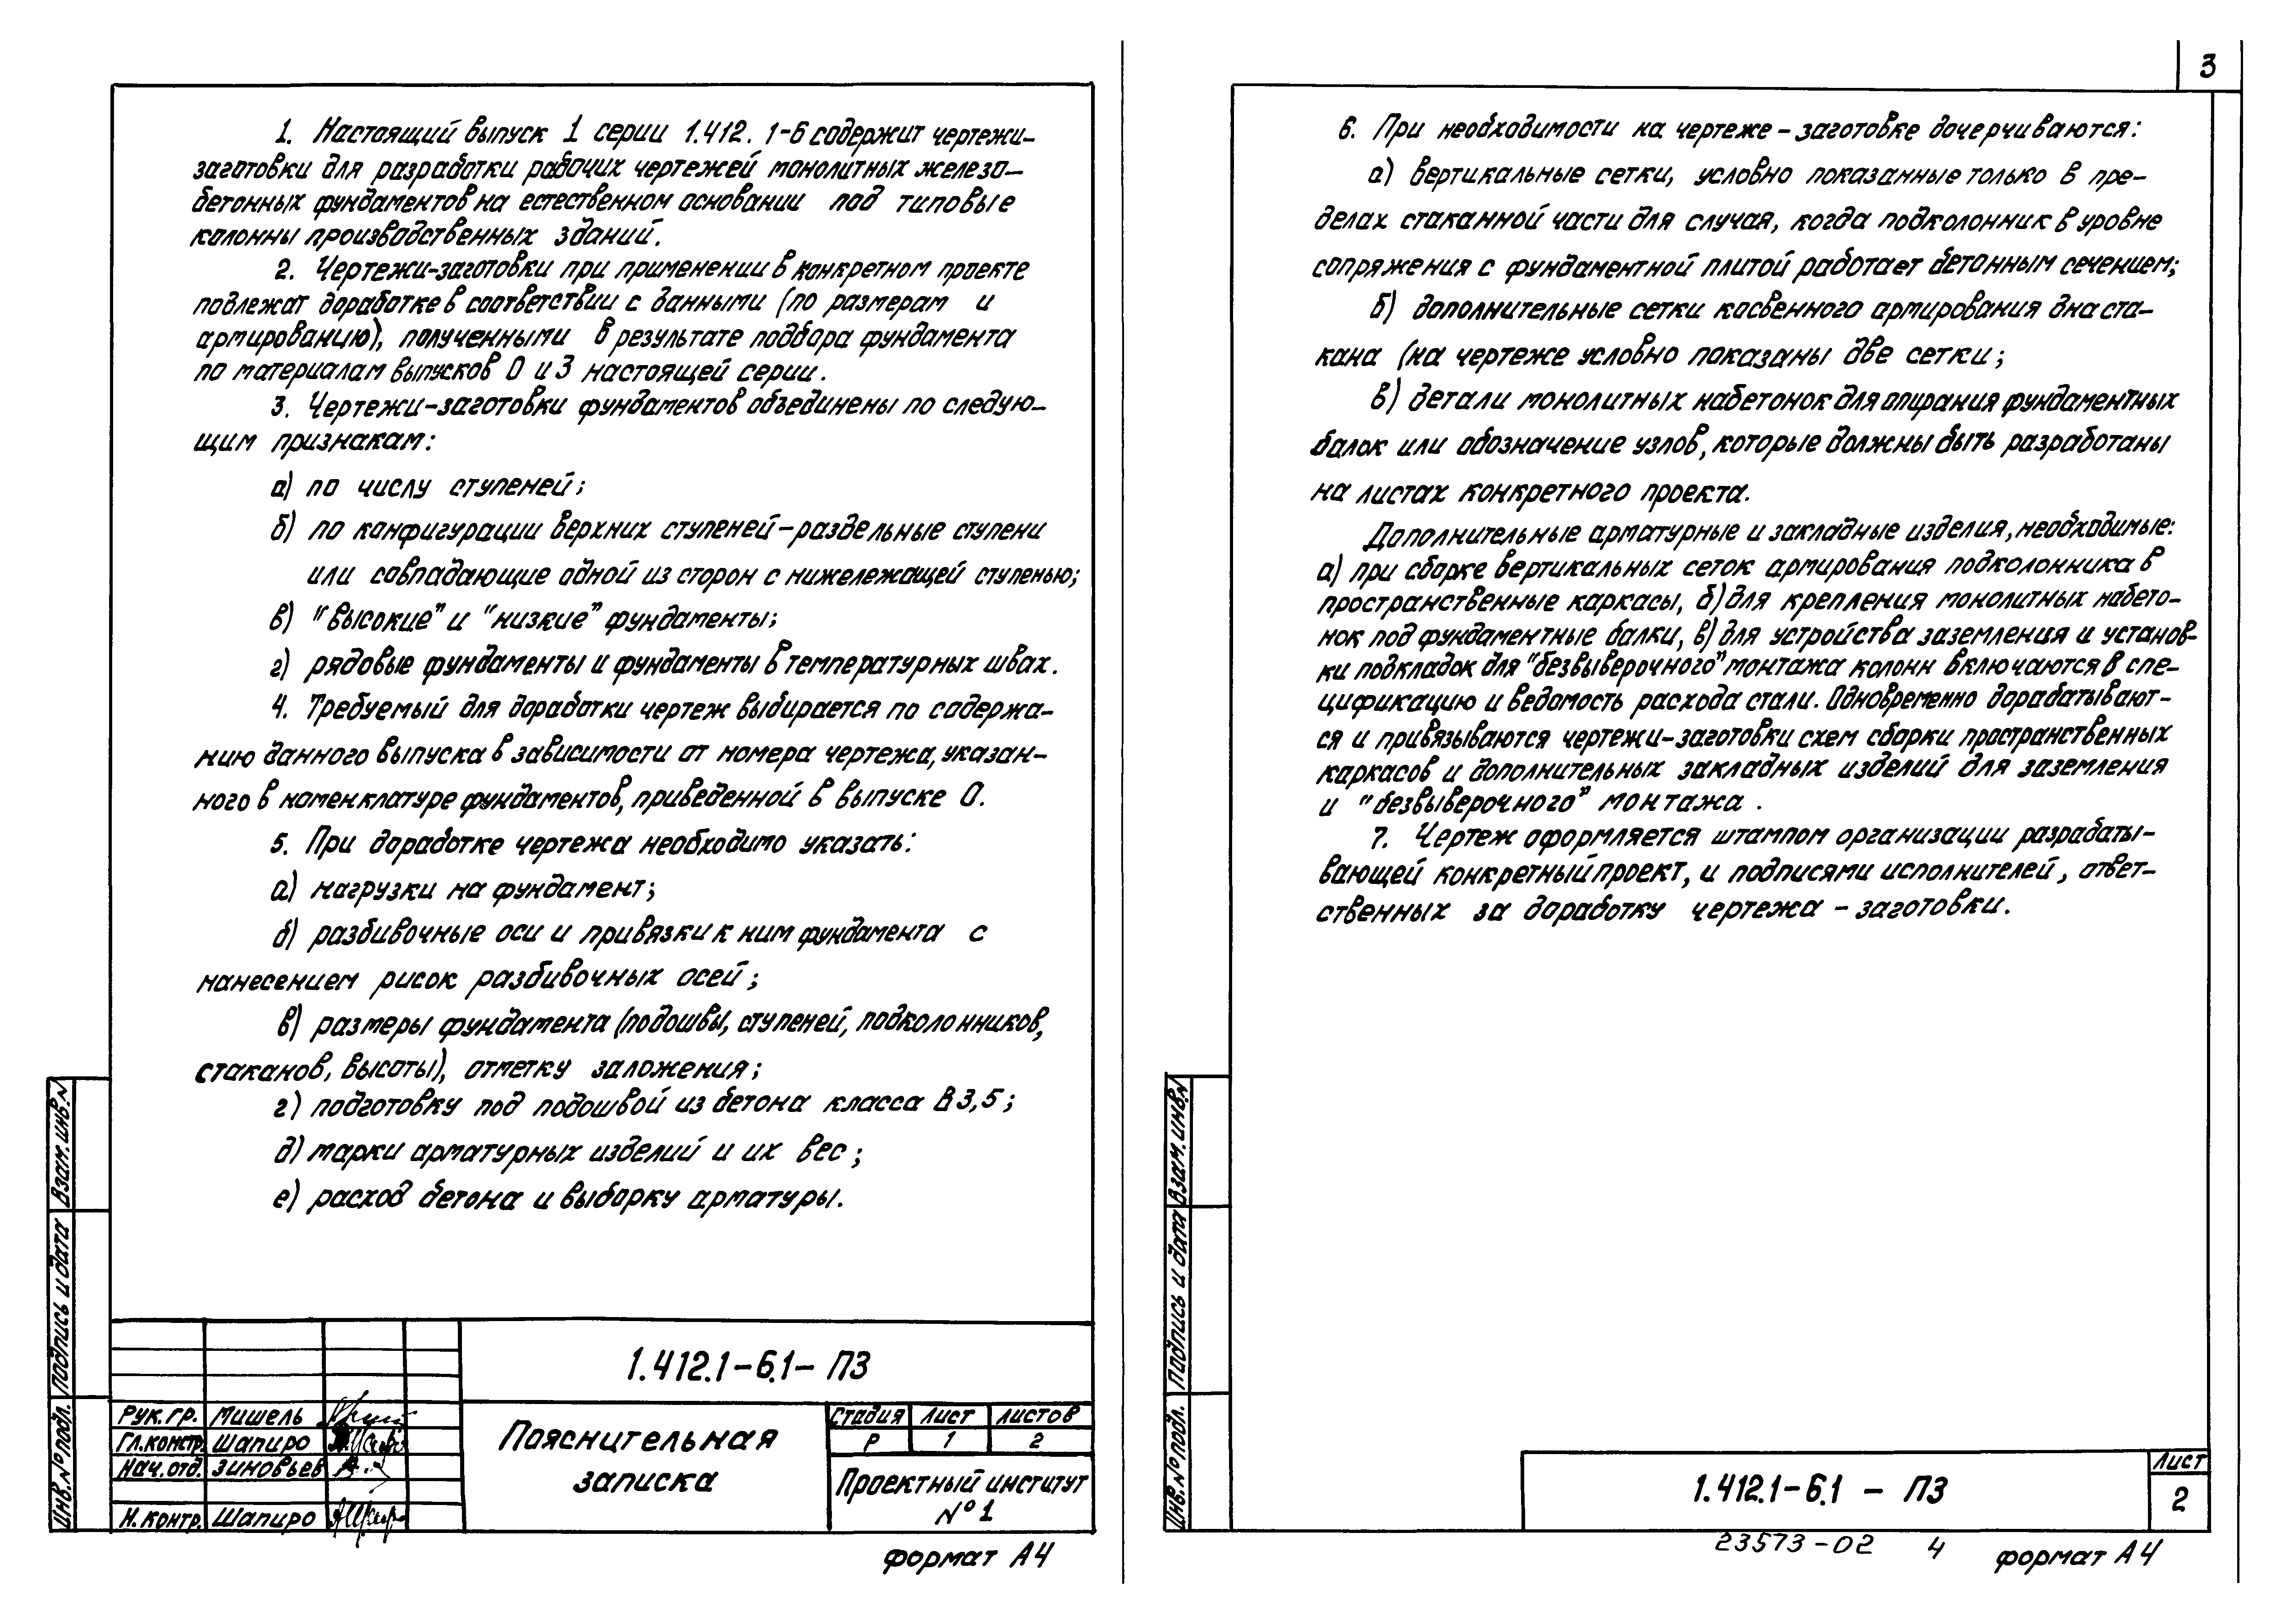 1. Настоящий выпуск 1 серии 1.412.1-6 содержит чертежи-
заготовки для разработки рабочих чертежей монолитных железо-
бетонных фундаментов на естественном основании под типовые
колонны производственных зданий.
2. Чертежи-заготовки при применении в конкретном проекте
подлежат доработке в соответствии с данными (по размерам и
армированию), полученными в результате подбора фундамента
по материалам выпусков 0 и 3 настоящей серии.
3. Чертежи-заготовки фундаментов объединены по следую-
щим признакам:
а) по числу ступеней;
б) по конфигурации верхних ступеней-раздельные ступени
или совпадающие одной из сторон с нижележащей ступенью;
в) "высокие" и "низкие" фундаменты;
г) рядовые фундаменты и фундаменты в температурных швах.
4. Требуемый для доработки чертеж выбирается по содержа-
нию данного выпуска в зависимости от номера чертежа, указан-
ного в номенклатуре фундаментов, приведенной в выпуске 0.
5. При доработке чертежа необходимо указать:
а) нагрузки на фундамент;
б) разбивочные оси и привязки к ним фундамента с
нанесением рисок разбивочных осей;
в) размеры фундамента (подошвы, ступеней, подколонников,
стаканов, высоты), отметку заложения;
г) подготовку под подошвой из бетона класса В3,5;
д) марки арматурных изделий и их вес;
е) расход бетона и выборку арматуры.
Взам. инв. N
Подпись и дата
Инв. № подл.
1.412.1-6.1- ПЗ
Рук. гр. Мишель
Гл. констр. Шапиро
Нач. отд. Зиновьев
Н. контр. Шапиро
Пояснительная
записка
Стадия Лист Листов
Р 1 2
Проектный институт
№ 1
формат А4
3
6. При необходимости на чертеже-заготовке дочерчиваются:
а) вертикальные сетки, условно показанные только в пре-
делах стаканной части для случая, когда подколонник в уровне
сопряжения с фундаментной плитой работает бетонным сечением;
б) дополнительные сетки косвенного армирования дна ста-
кана (на чертеже условно показаны две сетки;
в) детали монолитных набетонок для опирания фундаментных
балок или обозначение узлов, которые должны быть разработаны
на листах конкретного проекта.
Дополнительные арматурные и закладные изделия, необходимые:
а) при сборке вертикальных сеток армирования подколонника в
пространственные каркасы, б) для крепления монолитных набето-
нок под фундаментные балки, в) для устройства заземления и установ-
ки подкладок для "безвыверочного" монтажа колонн включаются в спе-
цификацию и ведомость расхода стали. Одновременно дорабатывают-
ся и привязываются чертежи-заготовки схем сборки пространственных
каркасов и дополнительных закладных изделий для заземления
и "безвыверочного" монтажа.
7. Чертеж оформляется штампом организации разрабаты-
вающей конкретный проект, и подписями исполнителей, ответ-
ственных за доработку чертежа-заготовки.
Взам. инв. N
Подпись и дата
Инв. № подл.
1.412.1-6.1 - ПЗ
Лист
2
23573-02 4
формат А4